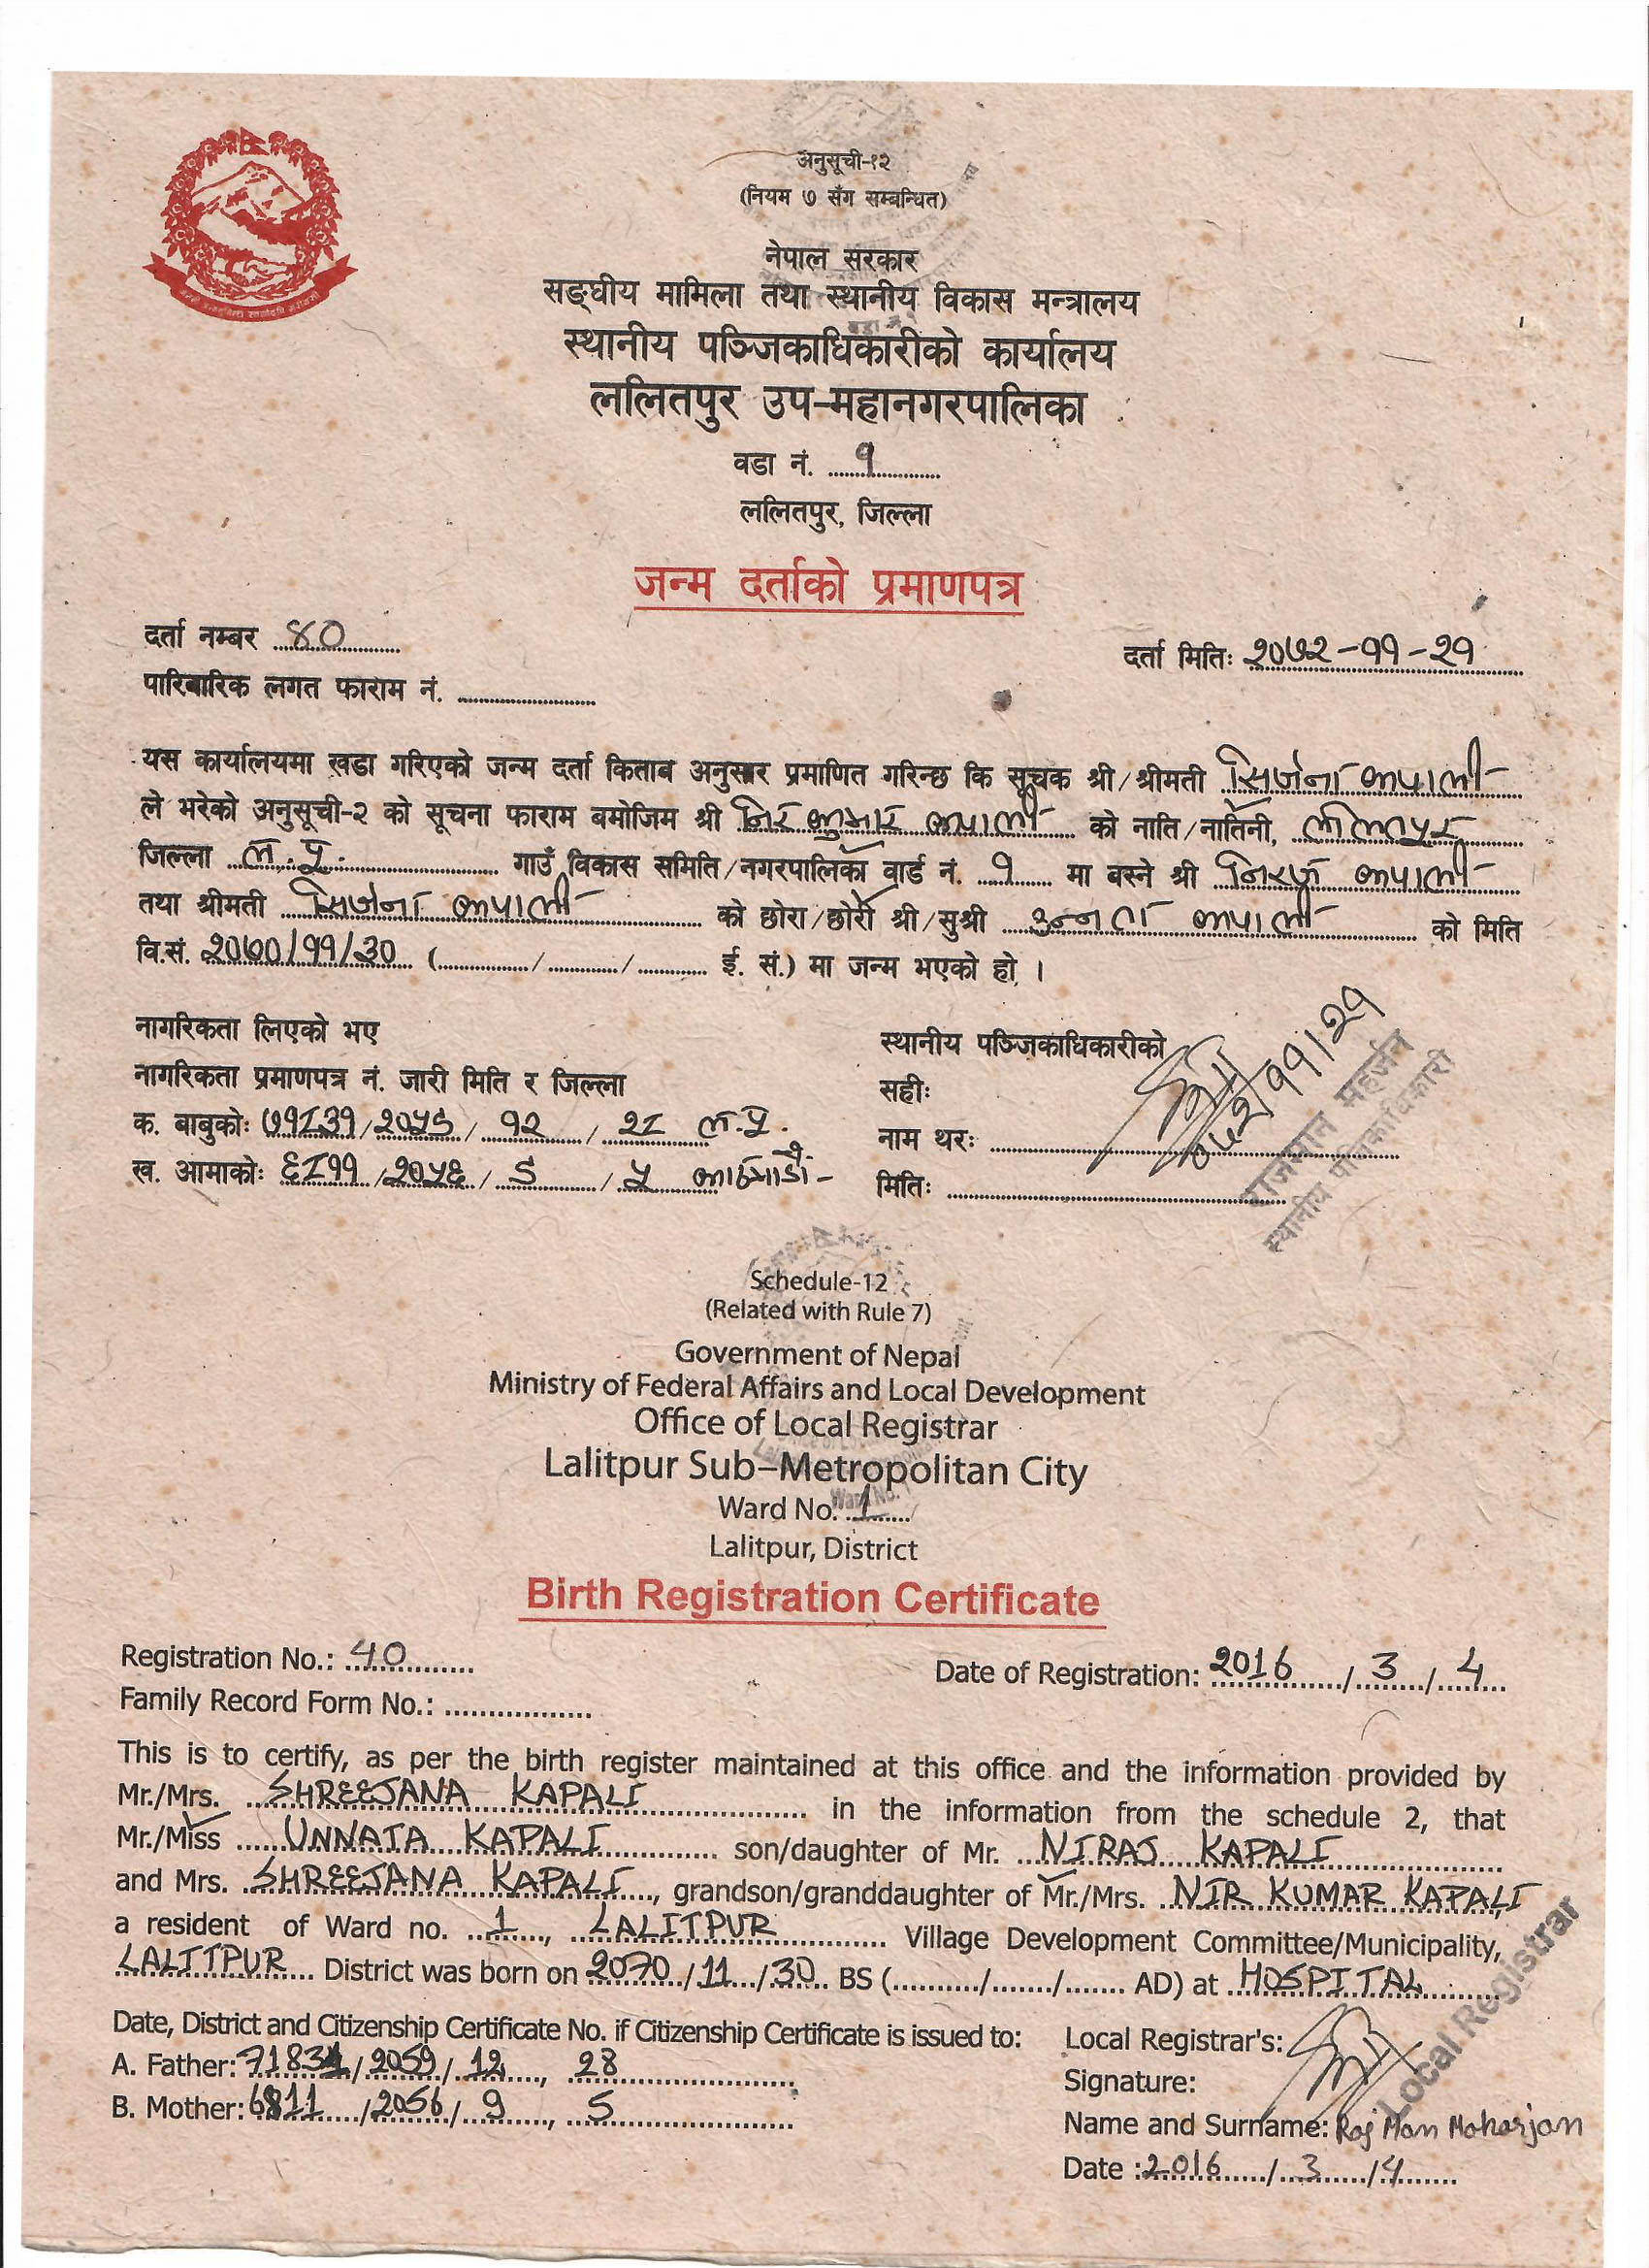 अनुसूची-१२
(नियम ७ सँग सम्बन्धित)
नेपाल सरकार
सङ्घीय मामिला तथा स्थानीय विकास मन्त्रालय
स्थानीय पञ्जिकाधिकारीको कार्यालय
ललितपुर उप-महानगरपालिका
वडा नं. १
ललितपुर, जिल्ला
जन्म दर्ताको प्रमाणपत्र
दर्ता नम्बर ४०
दर्ता मितिः २०७२-११-२१
पारिवारिक लगत फाराम नं.
यस कार्यालयमा खडा गरिएको जन्म दर्ता किताब अनुसार प्रमाणित गरिन्छ कि सूचक श्री/श्रीमती सिर्जना कपाली
ले भरेको अनुसूची-२ को सूचना फाराम बमोजिम श्री निर कुमार कपाली को नाति/नातिनी, ललितपुर
जिल्ला ल.पु. गाउँ विकास समिति/नगरपालिका वार्ड नं. १ मा बस्ने श्री निरज कपाली
तथा श्रीमती सिर्जना कपाली को छोरा/छोरी श्री/सुश्री उन्नता कपाली को मिति
वि.सं. २०७०/११/३० (........../........../.......... ई. सं.) मा जन्म भएको हो ।
नागरिकता लिएको भए
नागरिकता प्रमाणपत्र नं. जारी मिति र जिल्ला
क. बाबुकोः ७१८३१/२०५९/१२/२८ ल.पु.
ख. आमाकोः ६८११/२०५६/९/५ काठमाडौं
स्थानीय पञ्जिकाधिकारीको
सहीः
०७२/११/२१
नाम थरः
मितिः
राजमान महर्जन
स्थानीय पञ्जिकाधिकारी
Schedule-12
(Related with Rule 7)
Government of Nepal
Ministry of Federal Affairs and Local Development
Office of Local Registrar
Lalitpur Sub-Metropolitan City
Ward No. 1
Lalitpur, District
Birth Registration Certificate
Registration No.: 40
Date of Registration: 2016/3/4
Family Record Form No.:
This is to certify, as per the birth register maintained at this office and the information provided by
Mr./Mrs. SHREEJANA KAPALI in the information from the schedule 2, that
Mr./Miss UNNATA KAPALI son/daughter of Mr. NIRAJ KAPALI
and Mrs. SHREEJANA KAPALI, grandson/granddaughter of Mr./Mrs. NIR KUMAR KAPALI,
a resident of Ward no. 1, LALITPUR Village Development Committee/Municipality,
LALITPUR District was born on 2070/11/30 BS (........../......./....... AD) at HOSPITAL
Date, District and Citizenship Certificate No. if Citizenship Certificate is issued to:
A. Father: 71831/2059/12, 28
B. Mother: 6811/2056/9, 5
Local Registrar's:
Signature:
Name and Surname: Raj Man Maharjan
Date : 2016/3/4
Local Registrar